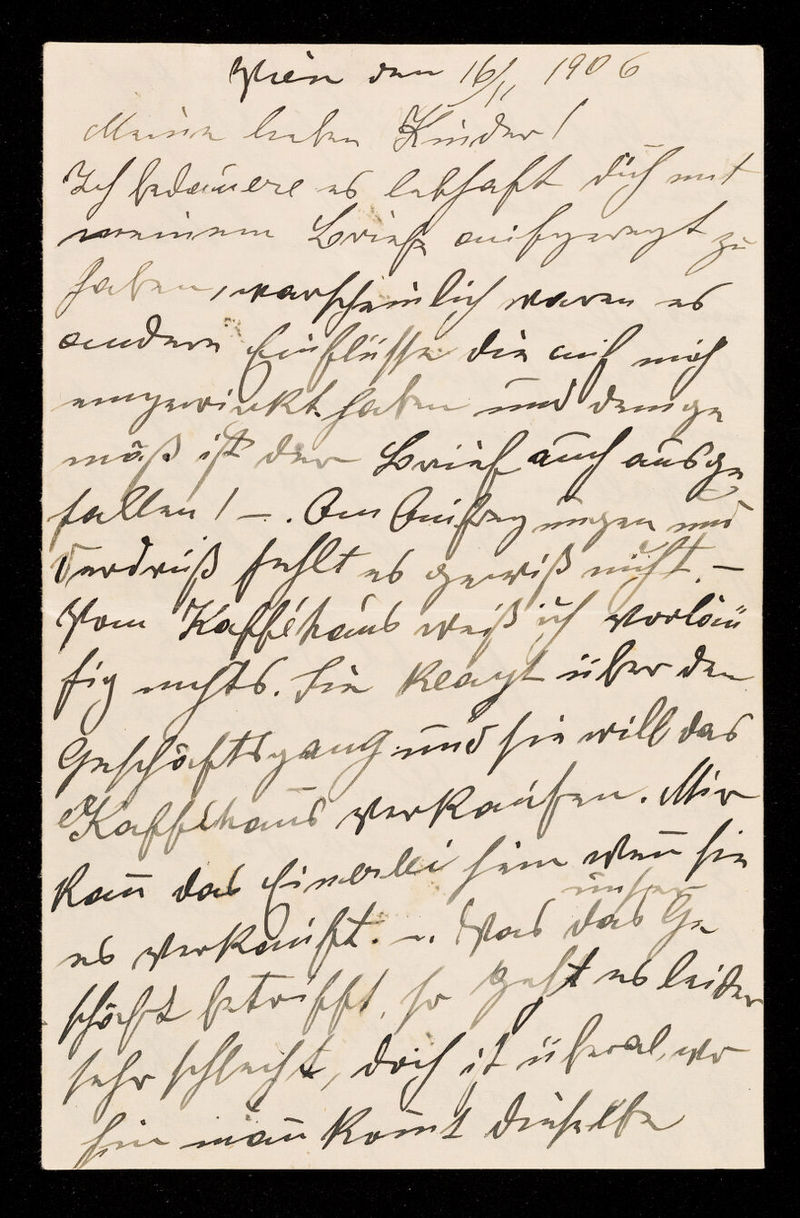 Wien den 16/11 1906
Meine lieben Kinder!
Ich bedauere es lebhaft dich mit
meinem Brief aufgeregt zu
haben, warscheinlich waren es
andere Einflüsse die auf mich
eingewirkt haben und demge
mäß ist der Brief auch ausge
fallen! –. An Aufregungen und
Verdruß fehlt es gewiß nicht. –
Vom Kafféhaus weiß ich vorläu
fig nichts. Sie klagt über den
Geschäftsgang und sie will das
Kafféhaus verkaufen. Mir
kan̄ das Einerlei sein wen̄ sie
es verkauft. –. Was das unser Ge
schäft betrifft, so geht es leider
sehr schlecht, doch ist überal, wo
hin man̄ kom̄t dieselbe